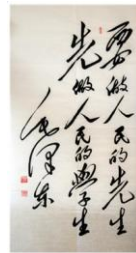 要做人民的先生
先做人民的學生
毛澤東